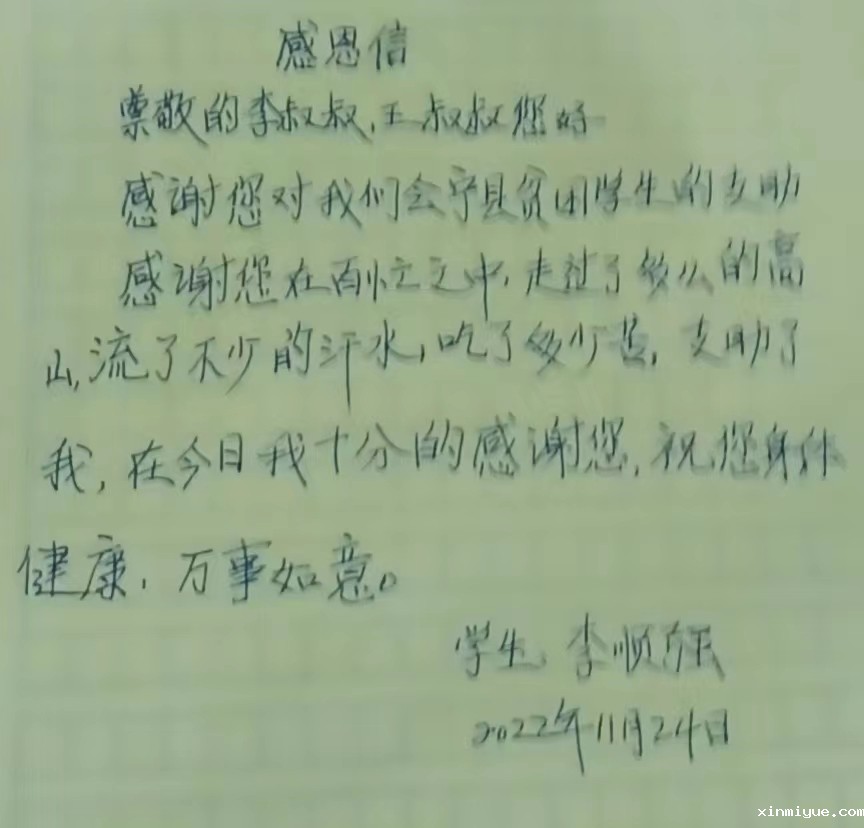 感恩信
尊敬的李叔叔,王叔叔您好
感谢您对我们会宁县贫困学生的支助
感谢您在百忙之中,走过了多么的高
山,流了不少的汗水,吃了多少苦,支助了
我,在今日我十分的感谢您,祝您身体
健康,万事如意。
学生 李顺
2022年11月24日
xinmiyue.com